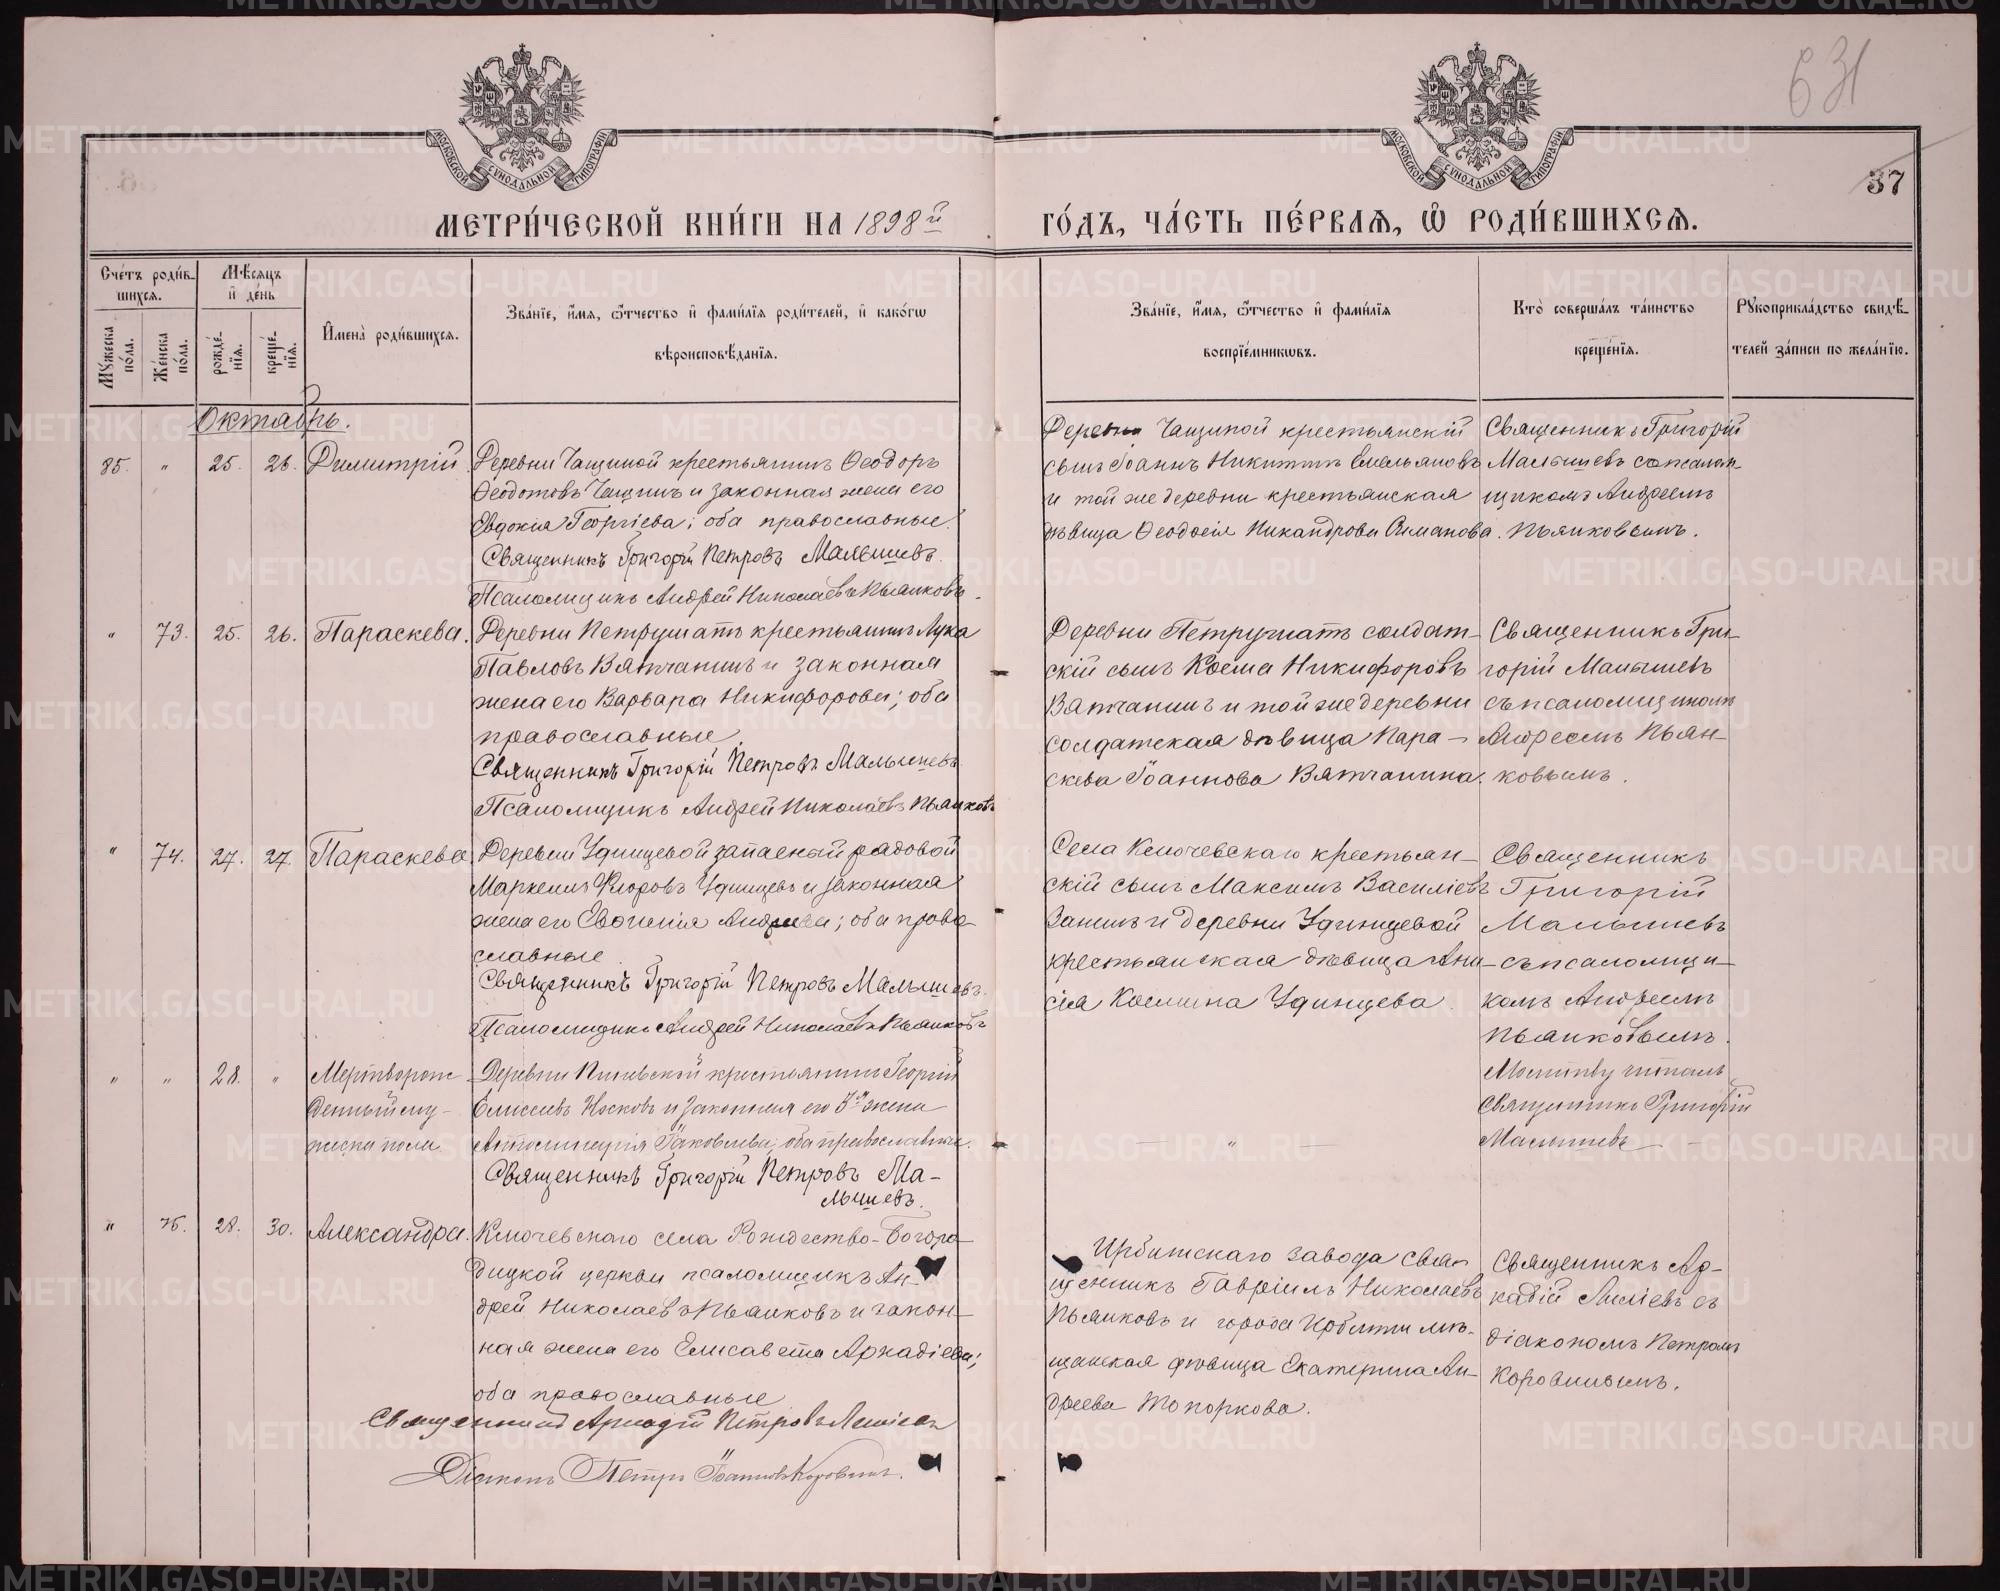 631
37
МОСКОВСКОЙ СУНОДАЛЬНОЙ ТИПОГРАФІИ
МОСКОВСКОЙ СУНОДАЛЬНОЙ ТИПОГРАФІИ
МЕТРИ́ЧЕСКОЙ КНИ́ГИ НА 1898й
ГО́ДЪ, ЧА́СТЬ ПЕ́РВАѦ, Ѡ҆ РОДИ́ВШИХСѦ.
Сче́тъ роди́в-
шихсѧ.
Мѣ́сѧцъ
и҆ де́нь
Мꙋ́жеска по́ла.
Же́нска по́ла.
рожде́-нїѧ.
креще́-нїѧ.
И҆мена̀ роди́вшихсѧ.
Зва́нїе, и҆́мѧ, ѻ҆́тчество и҆ фами́лїѧ роди́телей, и҆ како́гѡ
вѣроисповѣ́данїѧ.
Зва́нїе, и҆́мѧ, ѻ҆́тчество и҆ фами́лїѧ
воспрїе́мникѡвъ.
Кто̀ соверша́лъ та́инство
креще́нїѧ.
Рꙋкоприкла́дство свидѣ́-
телей за́писи по жела́нїю.
Октябрь.
85. " 25. 26. Димитрій
Деревни Чащиной крестьянинъ Ѳеодоръ
Ѳеодотовъ Чащинъ и законная жена его
Евдокія Георгіева; оба православные.
Священникъ Григорій Петровъ Малышевъ.
Псаломщикъ Андрей Николаевъ Пьянковъ.
Деревни Чащиной крестьянскій
сынъ Іоаннъ Никитинъ Емельяновъ
и той же деревни крестьянская
дѣвица Ѳеодосія Никандрова.
Священникъ Григорій
Малышевъ съ псалом-
щикомъ Андреемъ
Пьянковымъ.
" 73. 25. 26. Параскева.
Деревни Петрушатъ крестьянинъ Лука
Павловъ Вятчанинъ и законная
жена его Варвара Никифорова; оба
православные
Священникъ Григорій Петровъ Малышевъ
Псаломщикъ Андрей Николаевъ Пьянковъ
Деревни Петрушатъ солдат-
скій сынъ Косма Никифоровъ
Вятчанинъ и той же деревни
солдатская дѣвица Пара-
скева Іоаннова Вятчанина.
Священникъ Гри-
горій Малышевъ
съ псаломщикомъ
Андреемъ Пьян-
ковымъ.
" 74. 27. 27. Параскева
Деревни Удинцевой запасный рядовой
Маркеллъ Флоровъ Удинцевъ и законная
жена его Евгенія Андреева; оба право-
славные.
Священникъ Григорій Петровъ Малышевъ.
Псаломщикъ Андрей Николаевъ Пьянковъ
Села Ключевскаго крестьян-
скій сынъ Максимъ Василіевъ
и деревни Удинцевой
крестьянская дѣвица Ани-
сія Космина Удинцева
Священникъ
Григорій
Малышевъ
съ псаломщи-
комъ Андреемъ
Пьянковымъ.
" " 28. " Мертворож
денный му-
жеска пола
Деревни крестьянинъ Георгій
Елисеевъ Носковъ и законная его жена
Іаковлева; оба православные.
Священникъ Григорій Петровъ Ма-
лышевъ.
— " —
Молитву читалъ
священникъ Григорій
Малышевъ —
" 75. 28. 30. Александра.
Ключевского села Рождество-Богоро-
дицкой церкви псаломщикъ Ан-
дрей Николаевъ Пьянковъ и закон-
ная жена его Елисавета Аркадіева;
оба православные
Священникъ Аркадій Петровъ
Діаконъ Петръ Іоанновъ Коровинъ.
Ирбитскаго завода свя-
щенникъ Гавріилъ Николаевъ
Пьянковъ и города Ирбити мѣ-
щанская дѣвица Екатерина Ан-
дреева Топоркова.
Священникъ Ар-
кадій съ
діакономъ Петромъ
Коровинымъ.
METRIKI.GASO-URAL.RU